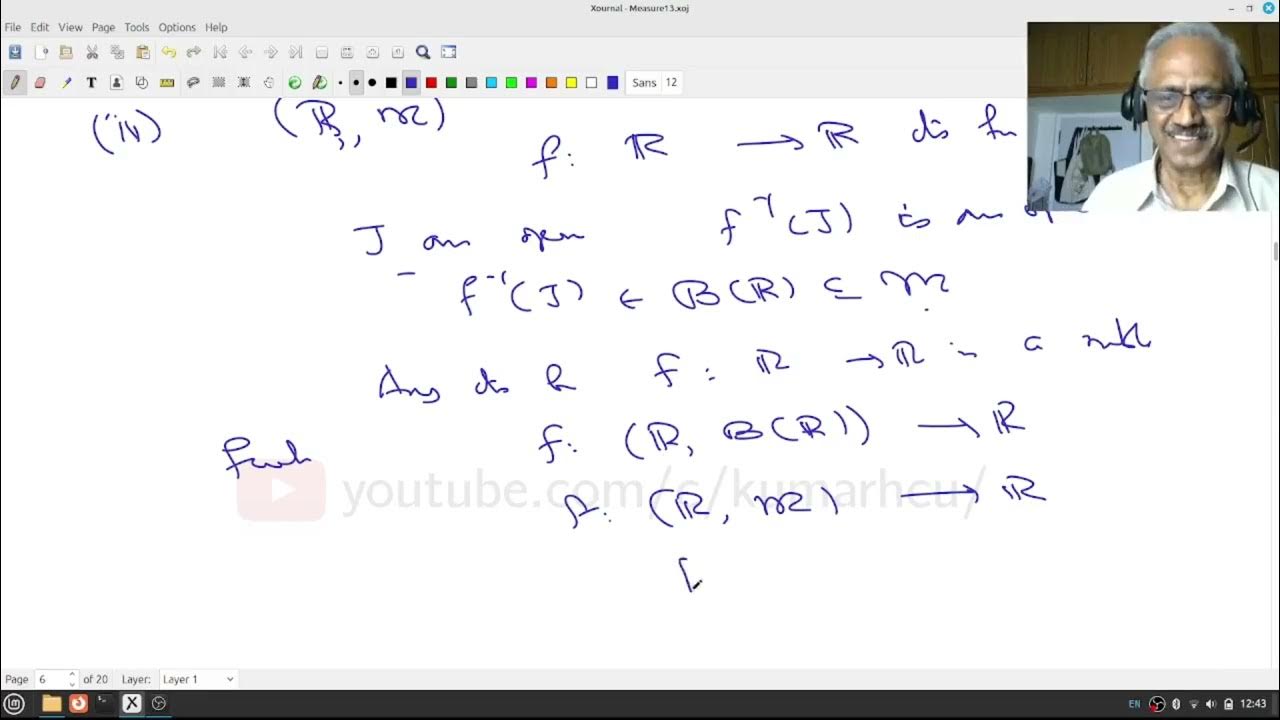 Xournal - Measure13.xoj
File Edit View Page Tools Options Help
T Sans 12
(iv) (ℝ, 𝔐)
f: ℝ → ℝ cts fn
J an open f⁻¹(J) is an op
f⁻¹(J) ∈ B(ℝ) ⊆ 𝔐
Any cts fn f: ℝ → ℝ is a mble
f: (ℝ, B(ℝ)) → ℝ
youtube.com/c/kumarhcu/
f: (ℝ, 𝔐) → ℝ
Page 6 of 20 Layer: Layer 1
EN 12:43